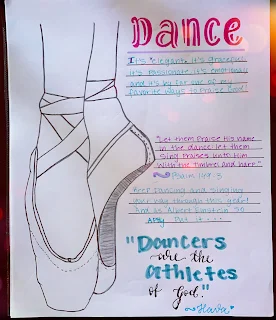 DANCE
It's elegant. It's graceful.
It's passionate. It's emotional
and it's by far one of my
favorite ways to Praise God!
"Let them Praise His name
in the dance: let them
Sing Praises unto Him
with the timbrel and harp."
~Psalm 149:3
Keep Dancing and Singing
your way through this year!
And as Albert Einstein so
Put it - - - -
"Dancers
are the
athletes
of God."
~Hava